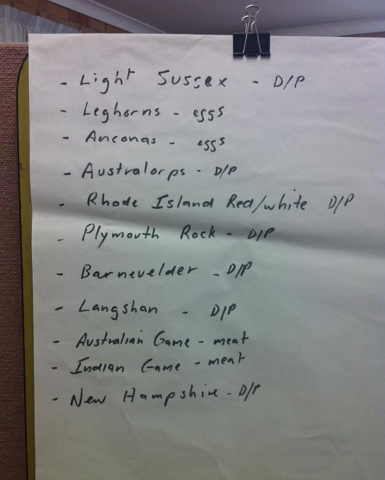 - Light Sussex - D/P
- Leghorns - eggs
- Anconas - eggs
- Australorps - D/P
- Rhode Island Red/white D/P
- Plymouth Rock - D/P
- Barnevelder - D/P
- Langshan - D/P
- Australian Game - meat
- Indian Game - meat
- New Hampshire - D/P